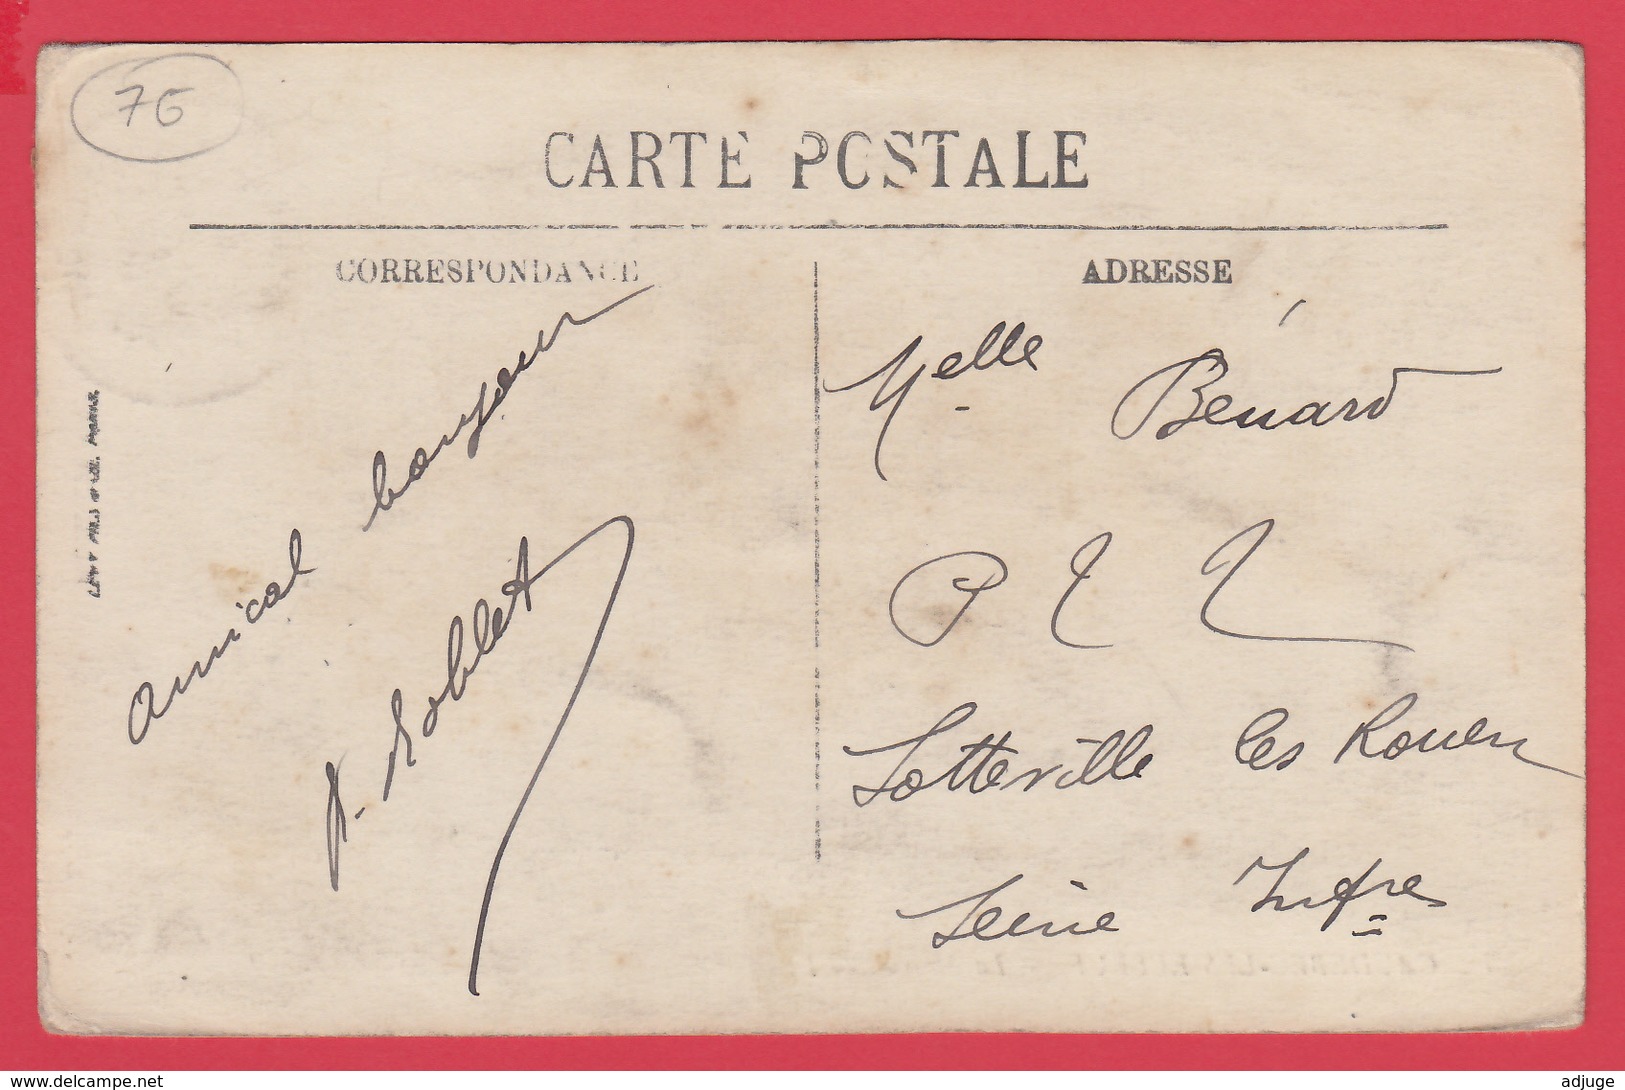 76
CARTE POSTALE
CORRESPONDANCE
ADRESSE
amical bonjour
A. Roblet
Melle Bénard
P T T
Sotteville les Rouen
Seine Infre
LEVY FILS
adjuge
www.delcampe.net